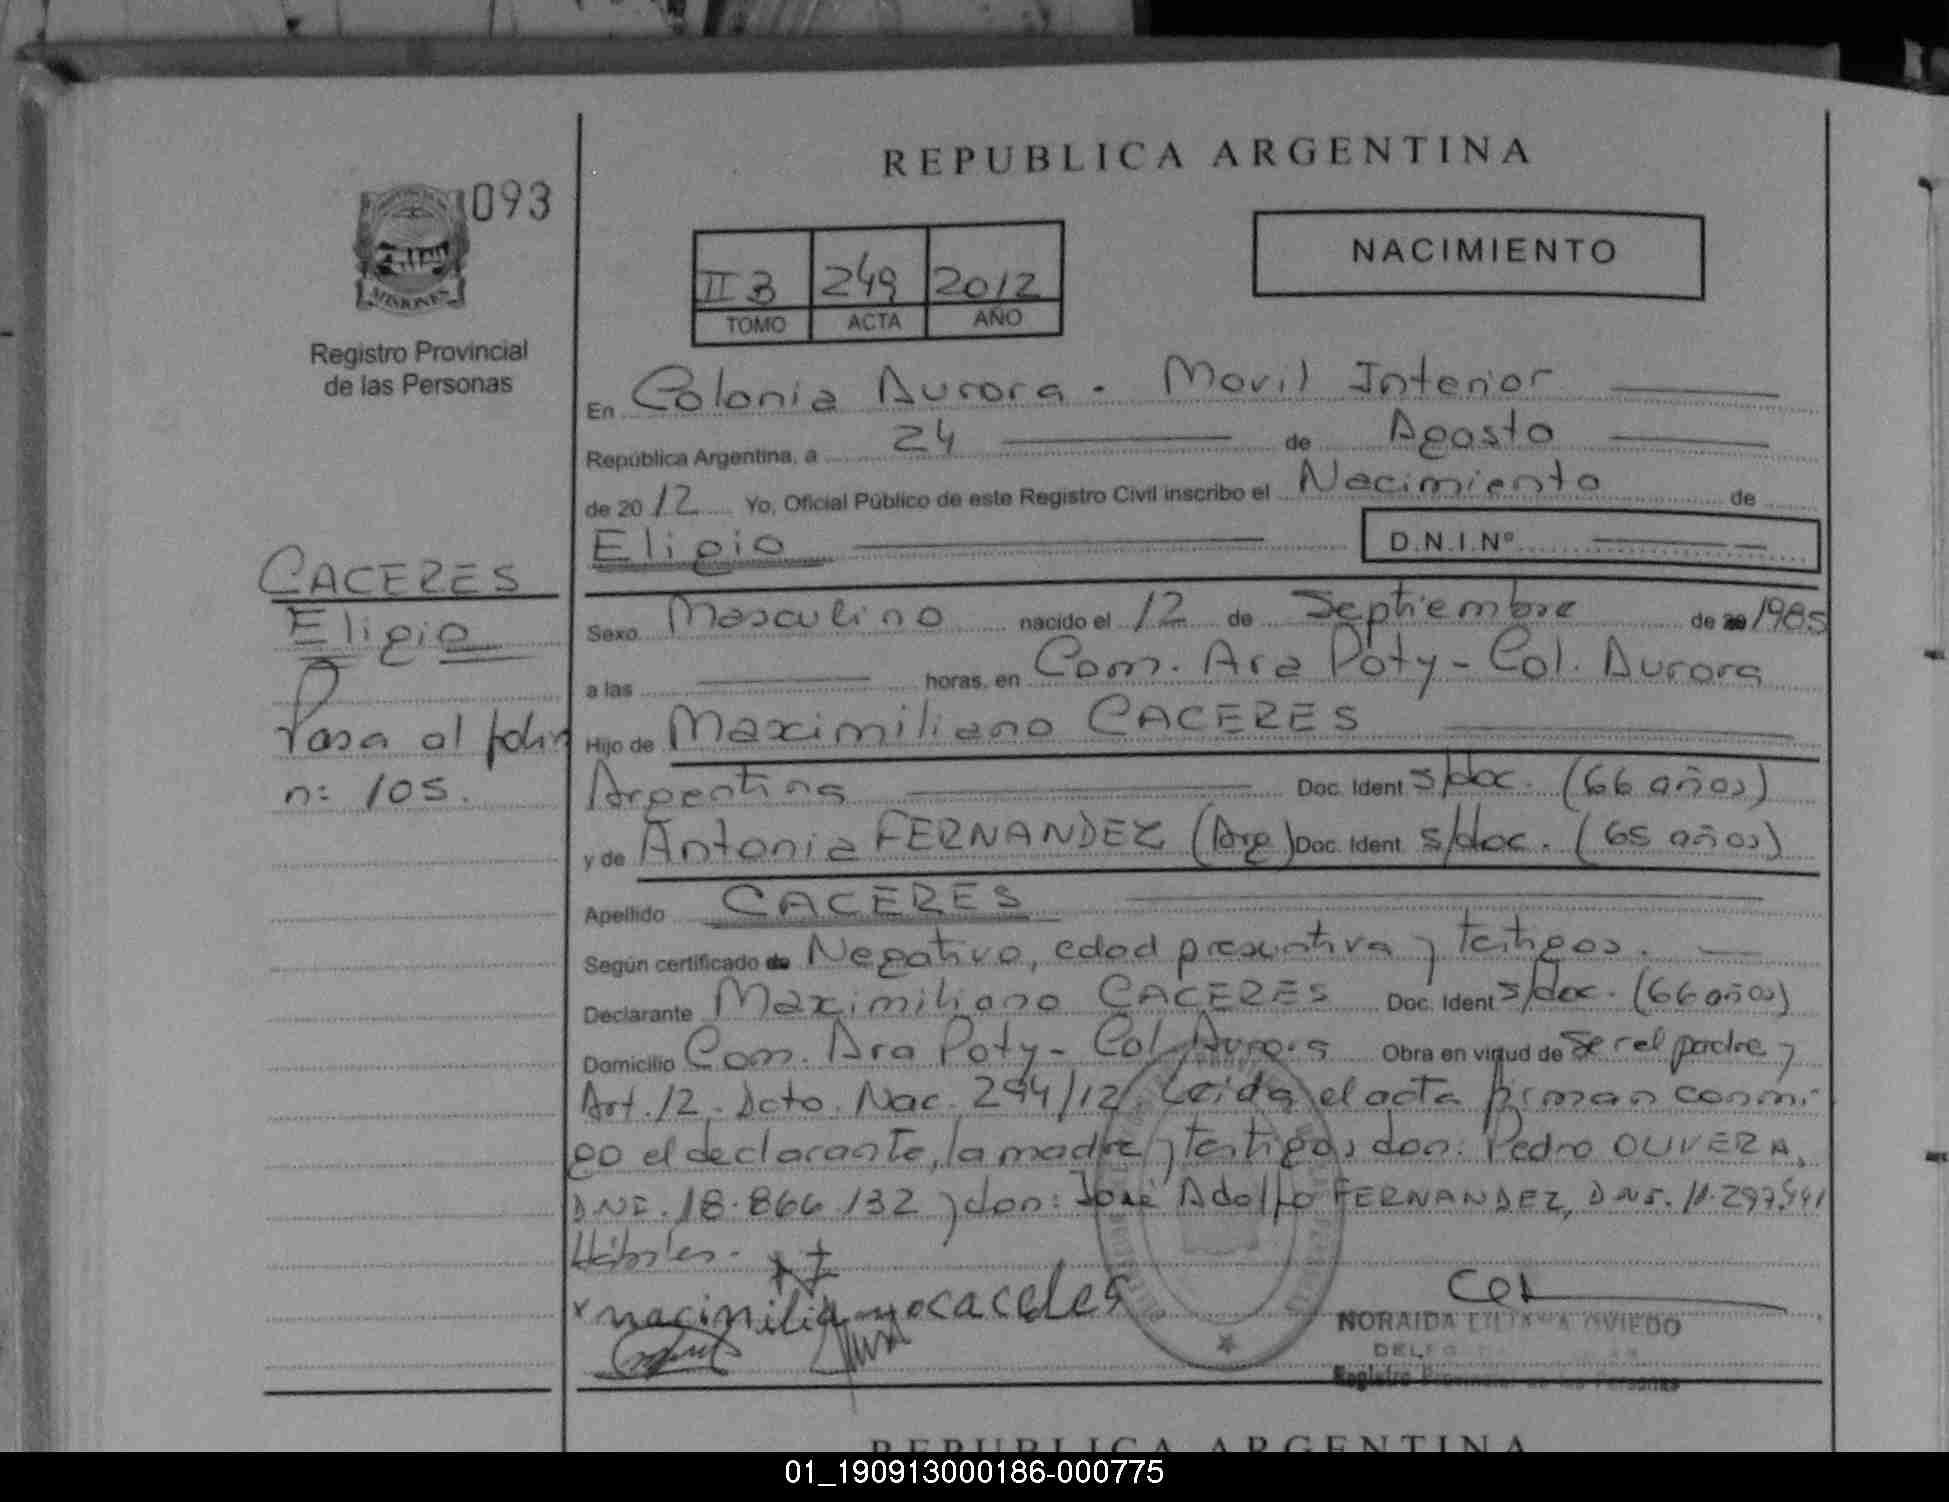 REPUBLICA ARGENTINA
093
MISIONES
Registro Provincial
de las Personas
NACIMIENTO
II B 249 2012
TOMO ACTA AÑO
En Colonia Aurora - Movil Interior
República Argentina, a 24 de Agosto
de 2012 Yo, Oficial Público de este Registro Civil inscribo el Nacimiento de
Eligio D.N.I.Nº
CACERES
Eligio
Pasa al folio
nº 105.
Sexo Masculino nacido el 12 de Septiembre de 1985
a las horas, en Com. Ara Poty - Col. Aurora
Hijo de Maximiliano CACERES
Argentina Doc. Ident s/doc. (66 años)
y de Antonia FERNANDEZ (Arg) Doc. Ident. s/doc. (65 años)
Apellido CACERES
Según certificado de Negativo, edad presuntiva y testigos.
Declarante Maximiliano CACERES Doc. Ident s/doc. (66 años)
Domicilio Com. Ara Poty - Col. Aurora Obra en virtud de Ser el padre y
Art. 12 - Dcto. Nac. 294/12 Leida el acta firman conmi-
go el declarante, la madre y testigos don: Pedro OLIVERA,
DNI. 18.866.132 y don: José Adolfo FERNANDEZ, DNI. 11.297.541
Hábiles.
x macimiliano caceles
NORAIDA LILIANA OVIEDO
Registro Provincial de las Personas
REPUBLICA ARGENTINA
01_190913000186-000775